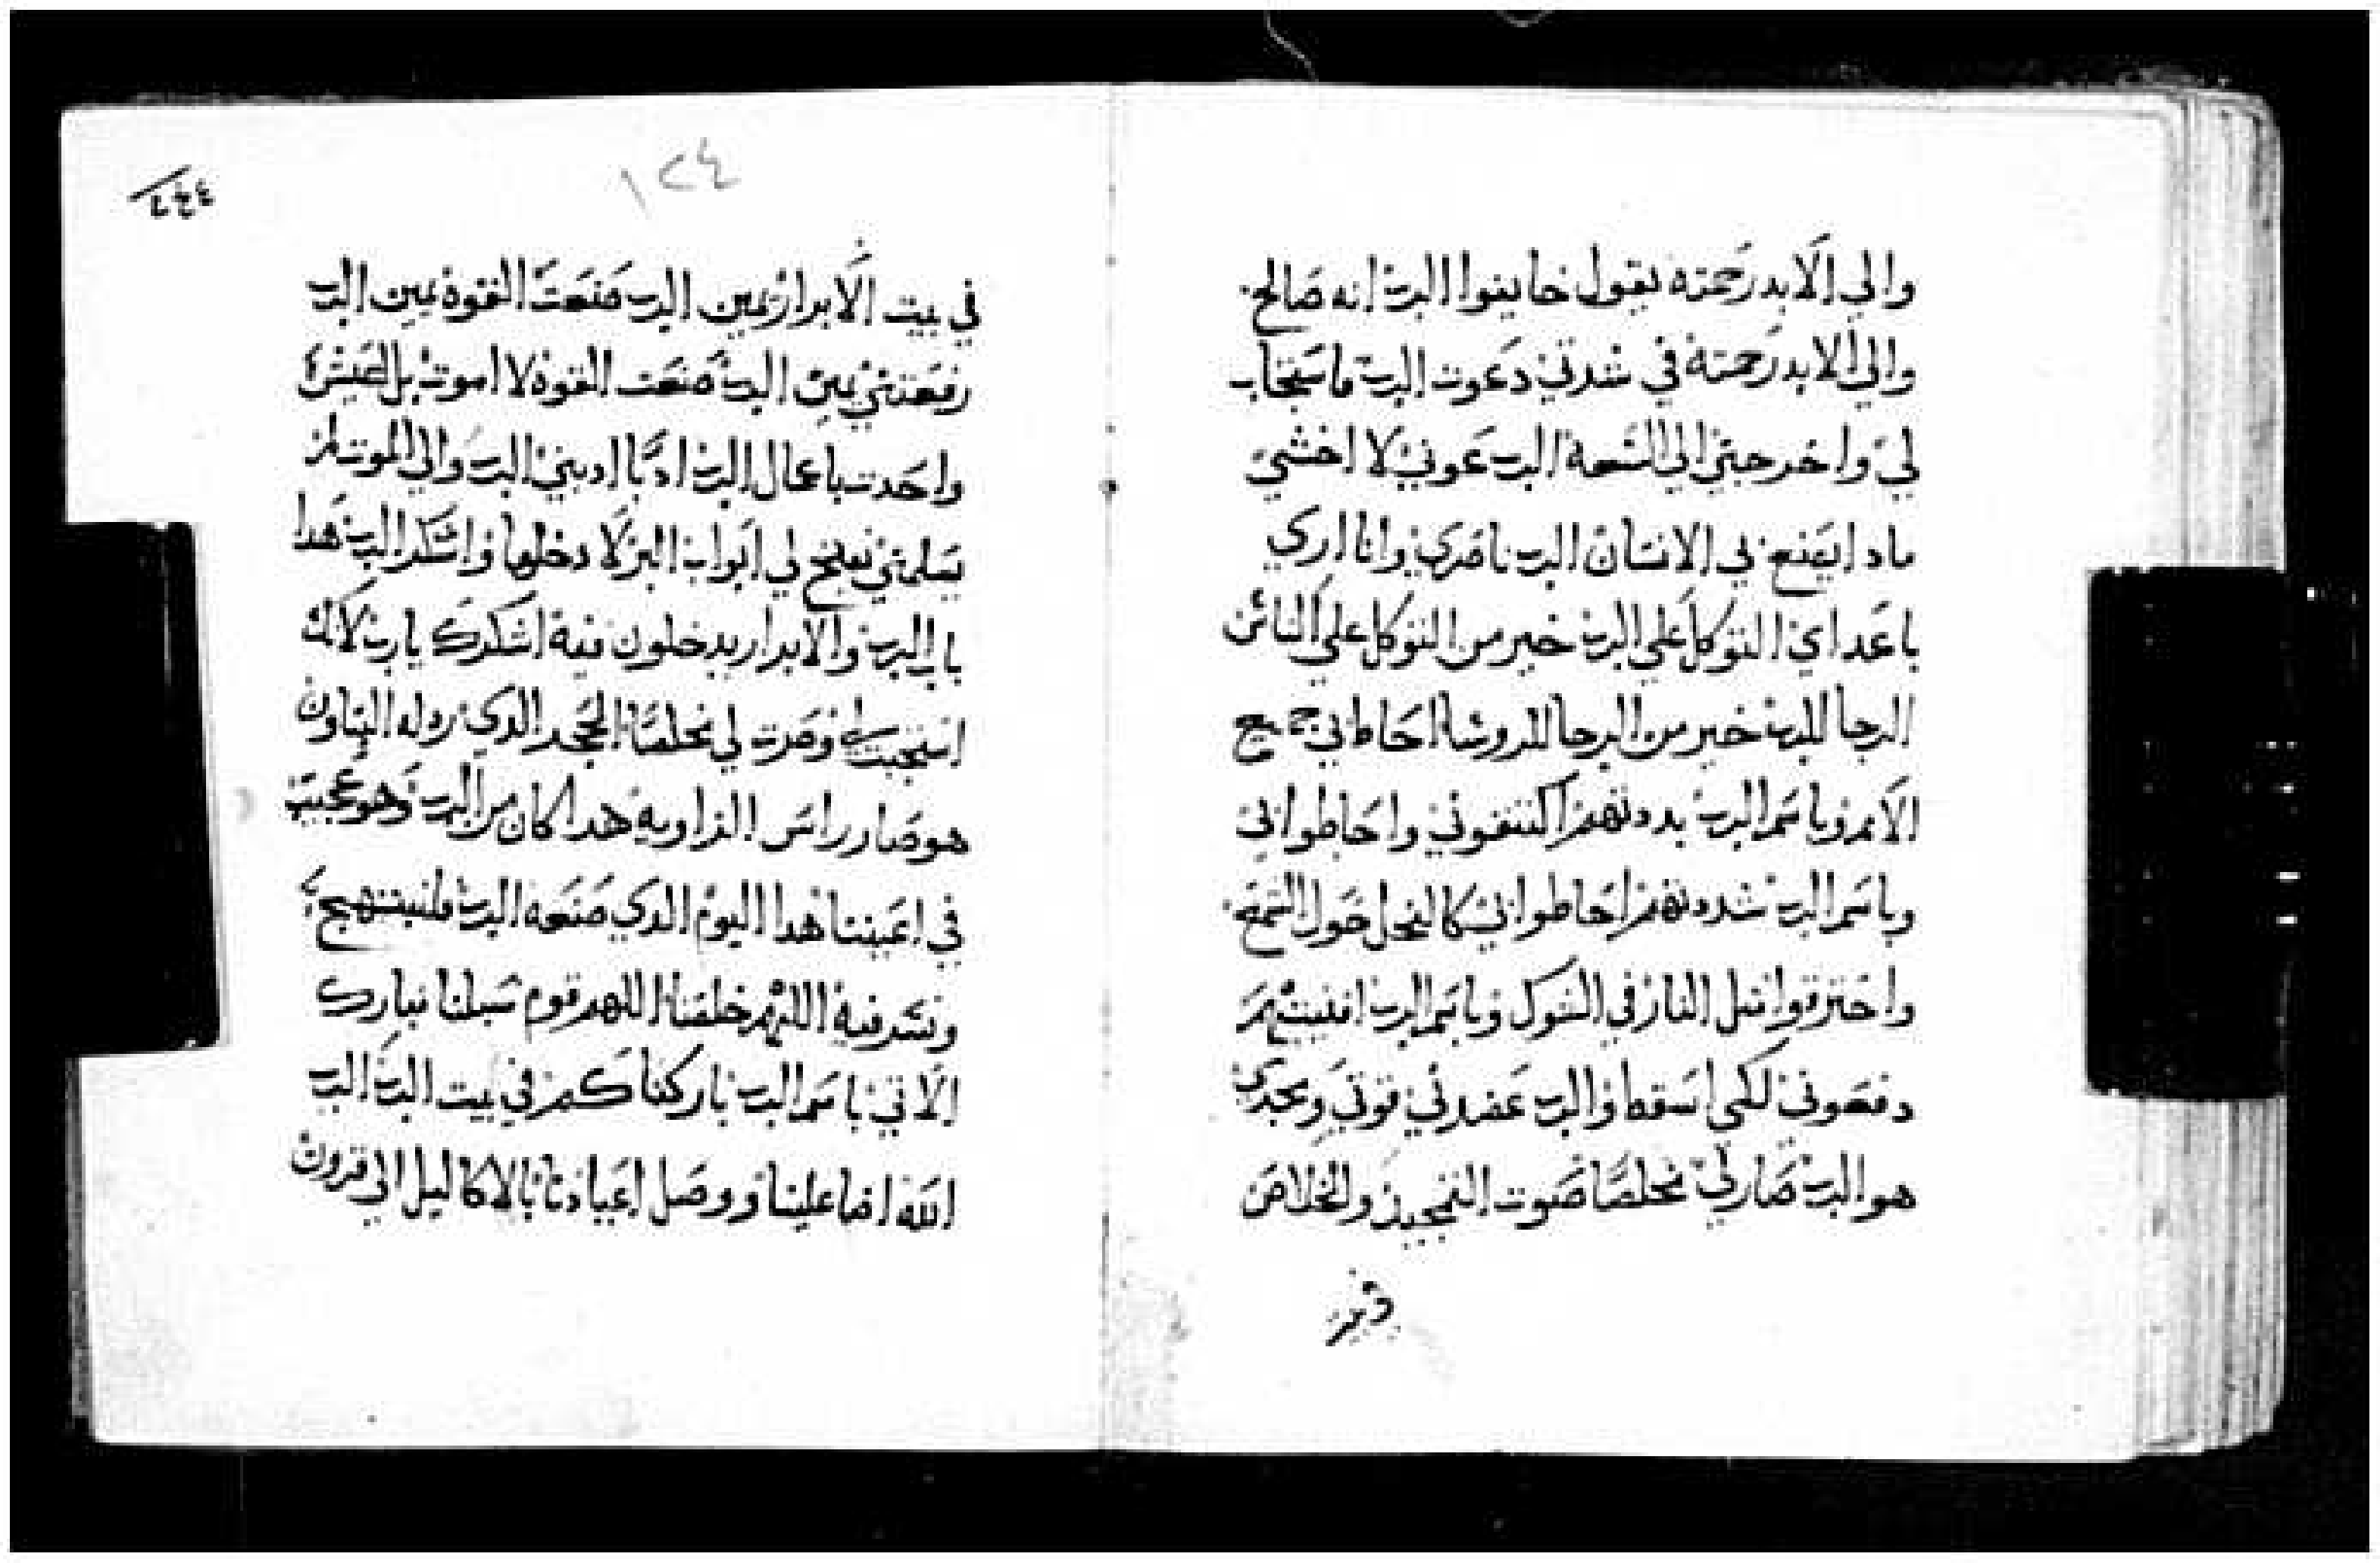 والي الابد رحمته يقول خايفوا الرب انه صالح
والي الابد رحمته في شدتي دعوت الرب فاستجاب
لي واخرجني الي السعة الرب عوني لا اخشي
مادا يصنع بي الانسان الرب ناصري وانا اري
باعداي التوكل علي الرب خير من التوكل علي الناس
الرجا للرب خير من الرجا للروسا احاط بي جميع
الامم وباسم الرب بددتهم اكتنفوني واحاطوا بي
وباسم الرب شددتهم احاطوا بي كالنحل حول الشمع
واحترقوا مثل النار في الشوك وباسم الرب افنيتهم
دفعوني لكي اسقط والرب عضدني قوتي ومجدي
هو الرب صار لي مخلصا صوت التمجيد والخلاص
١٢٤
في بيت الابرار يمين الرب صنعت القوة يمين الرب
رفعتني يمين الرب صنعت القوة لا اموت بل اعيش
واحدت باعمال الرب ادبا ادبني الرب والي الموت لم
يسلمني تفتح لي ابواب البر لادخلها واشكر الرب هدا
باب الرب والابرار يدخلون فيه اشكرك يا رب لانك
استجبت لي وصرت لي مخلصا الحجر الدي ردله البناون
هو صار راس الزاوية هدا كان من الرب وهو عجيب
في اعيننا هدا اليوم الدي صنعه الرب فلنبتهج
ونسر فيه اللهم خلصنا اللهم قوم سبلنا تبارك
الاتي باسم الرب باركناكم في بيت الرب الرب
الله اضا علينا ووصل اعيادنا بالاكاليل الي قرون